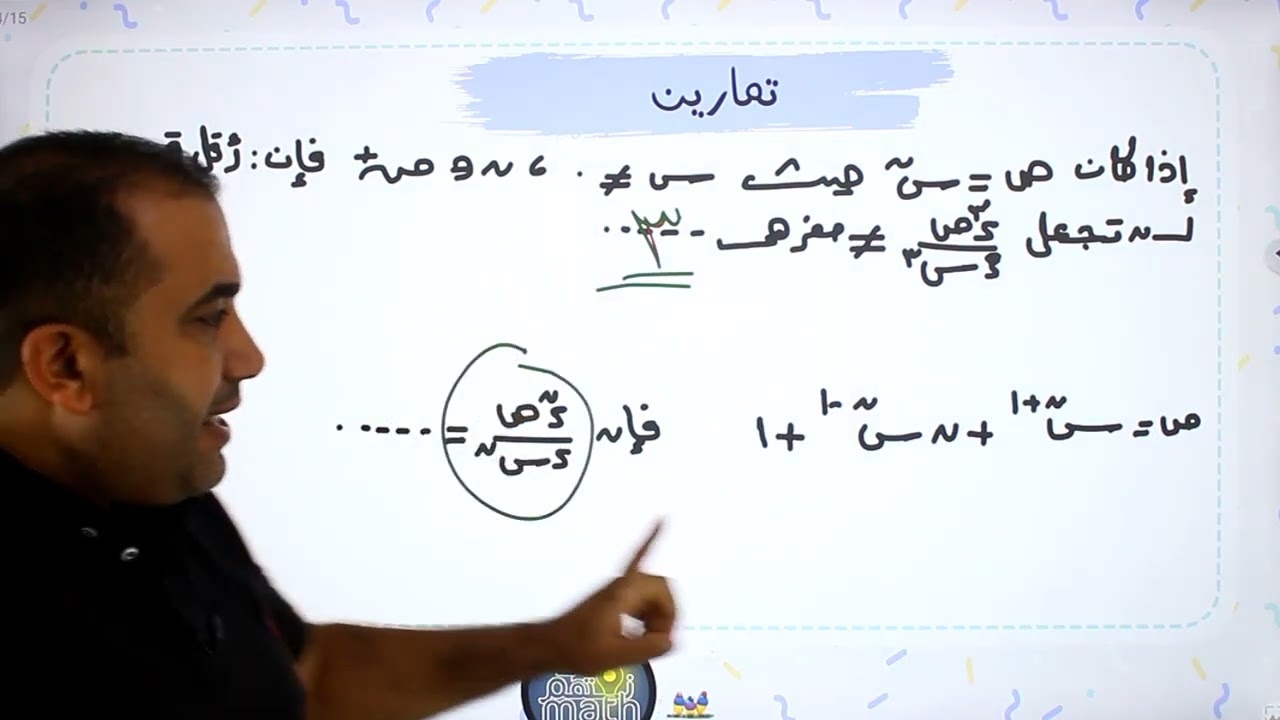 4/15
تمارين
إذا كان ص = س^ن حيث س ≠ ٠ ، ن ∈ ص+ فإن: أقل قيمة
لـ ن تجعل د^٣ص/دس^٣ ≠ صفر هـ - ٣ ...
ص = س^ن+١ + ن س^ن-١ + ١ فإن د^ن ص/دس^ن = .....
نرتقم
math